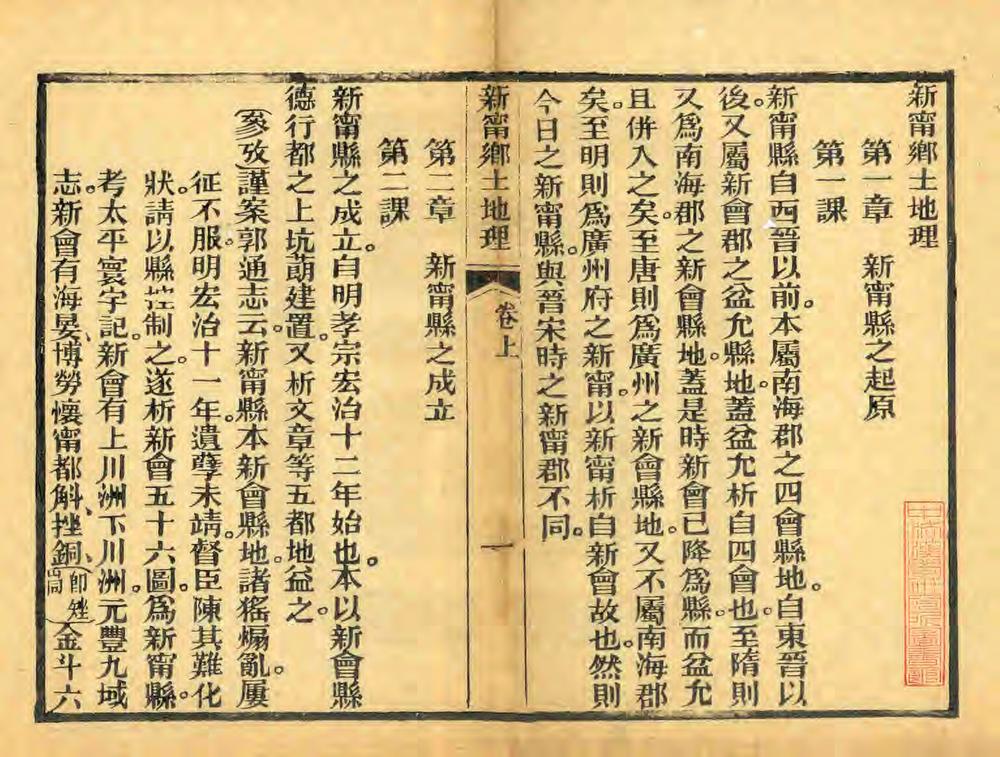 新甯鄉土地理
第一章　新甯縣之起原
第一課
新甯縣自西晉以前。本屬南海郡之四會縣地。自東晉以
後。又屬新會郡之盆允縣地。蓋盆允析自四會也。至隋則
又爲南海郡之新會縣地。蓋是時新會已降爲縣。而盆允
且併入之矣。至唐則爲廣州之新會縣地。又不屬南海郡
矣。至明則爲廣州府之新甯。以新甯析自新會故也。然則
今日之新甯縣。與晉宋時之新甯郡不同。
新甯鄉土地理　卷上　一
第二章　新甯縣之成立
第二課
新甯縣之成立。自明孝宗宏治十二年始也。本以新會縣
德行都之上坑蓢建置。又析文章等五都地益之。
（參攷）謹案郭通志云。新甯縣本新會縣地。諸猺煽亂。屢
征不服。明宏治十一年。遺孽未靖。督臣陳其難化
狀。請以縣控制之。遂析新會五十六圖。爲新甯縣。
考太平寰宇記。新會有上川洲下川洲。元豐九域
志。新會有海晏、博勞、懷甯都斛、挫銅、（即矬峒）金斗六